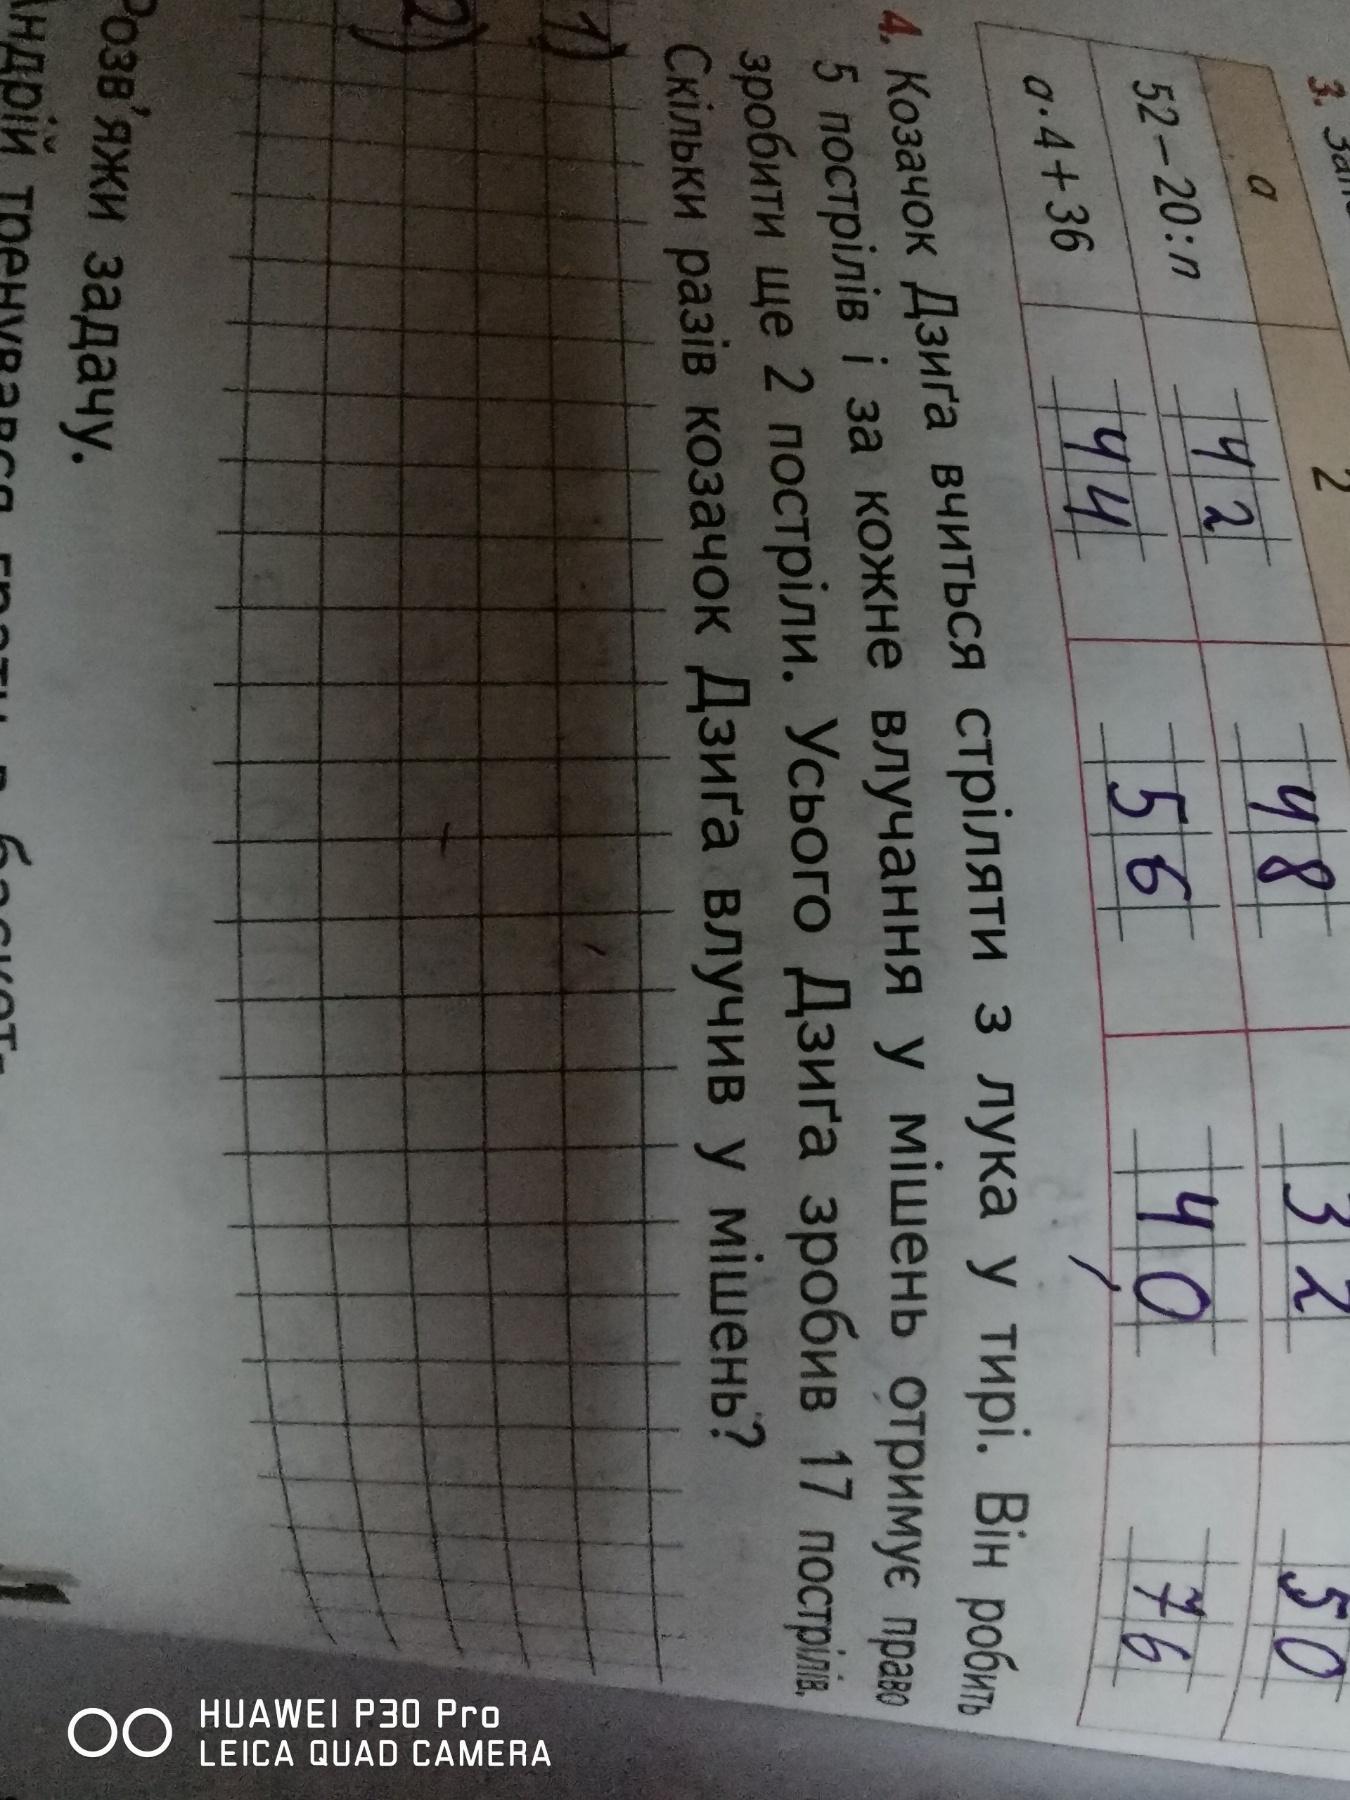 3.
a 2
52−20:n 42 48 32 50
a·4+36 44 56 40 76
4. Козачок Дзиґа вчиться стріляти з лука у тирі. Він робить
5 пострілів і за кожне влучання у мішень отримує право
зробити ще 2 постріли. Усього Дзиґа зробив 17 пострілів.
Скільки разів козачок Дзиґа влучив у мішень?
1)
2)
Розв'яжи задачу.
Андрій тренувався
HUAWEI P30 Pro
LEICA QUAD CAMERA